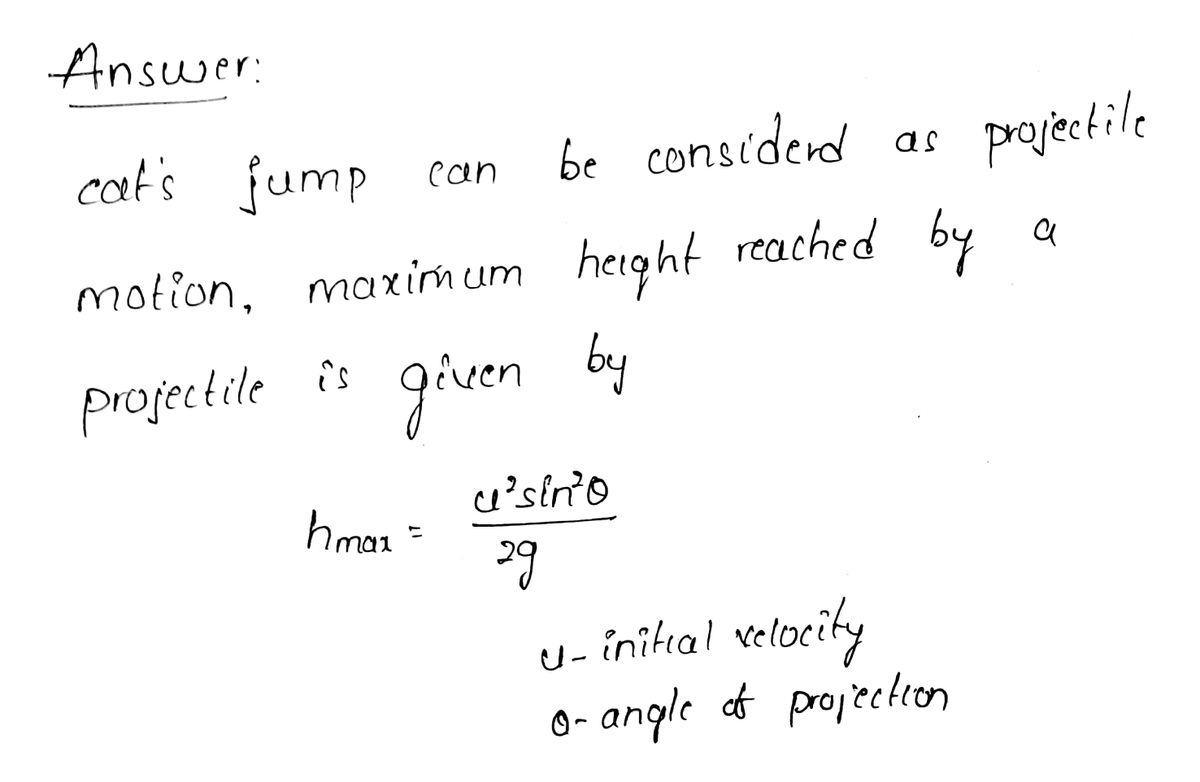 Answer:
cat's jump can be considerd as projectile
motion, maximum height reached by a
projectile is given by
hmax = u²sin²θ / 2g
u - initial velocity
θ - angle of projection